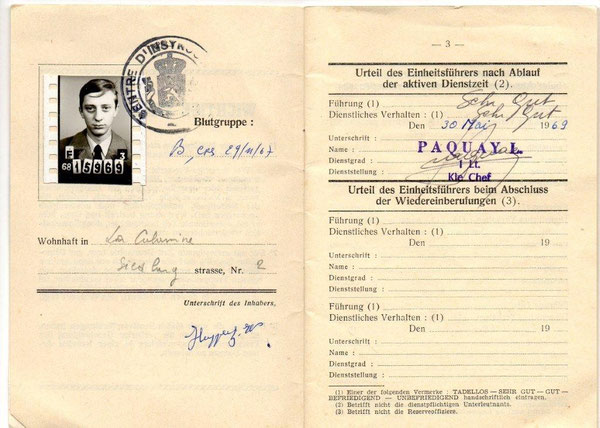 CENTRE D'INSTRUC
Blutgruppe :
B
F 3
68 15969
Wohnhaft in La Calamine
strasse, Nr. 2
Unterschrift des Inhabers,
— 3 —
Urteil des Einheitsführers nach Ablauf
der aktiven Dienstzeit (2).
Führung (1) Sehr Gut
Dienstliches Verhalten : (1) Sehr Gut
Den 30 Mai 1969
Unterschrift :
Name : PAQUAY L.
Dienstgrad : 1 Lt.
Dienststellung : Kie Chef
Urteil des Einheitsführers beim Abschluss
der Wiedereinberufungen (3).
Führung (1)
Dienstliches Verhalten : (1)
Den 19
Unterschrift :
Name :
Dienstgrad :
Dienststellung :
Führung (1)
Dienstliches Verhalten : (1)
Den 19
Unterschrift :
Name :
Dienstgrad :
Dienststellung :
(1) Einer der folgenden Vermerke : TADELLOS — SEHR GUT — GUT —
BEFRIEDIGEND — UNBEFRIEDIGEND handschriftlich eintragen.
(2) Betrifft nicht die dienstpflichtigen Unterleutnants.
(3) Betrifft nicht die Reserveoffiziere.